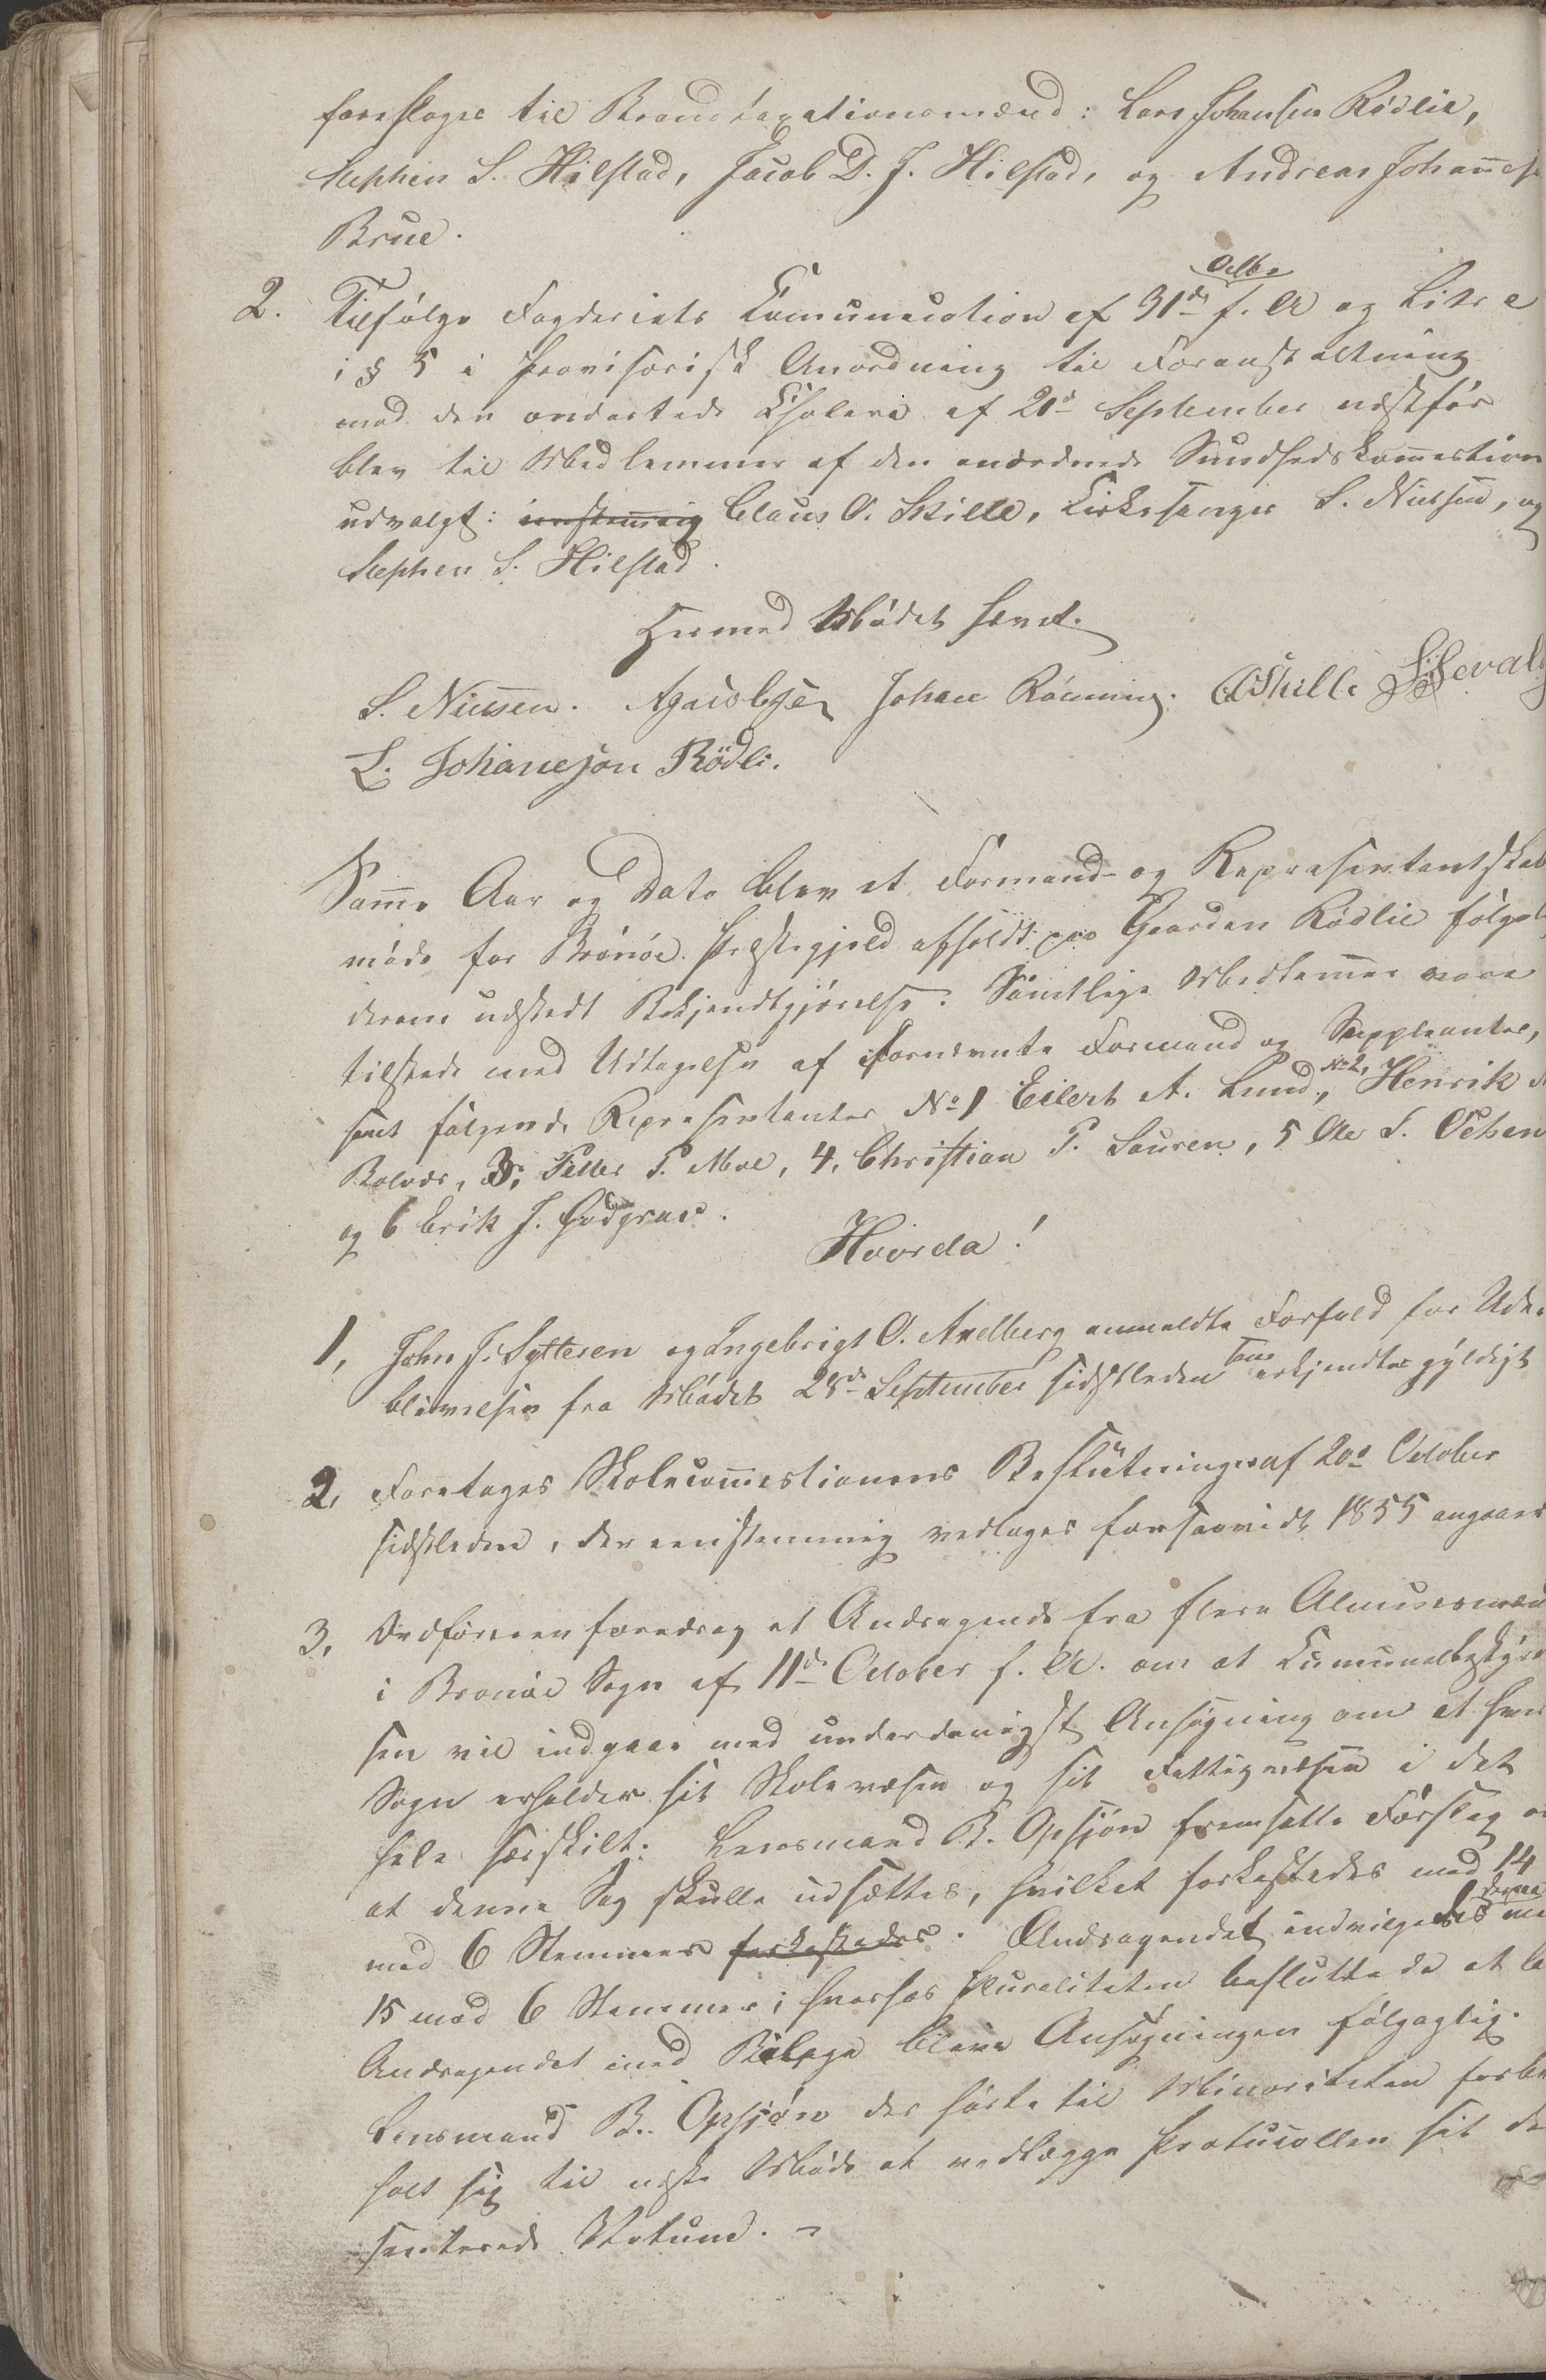 foreslages til Brandtaxationsmænd: Lars Johansen Rødlie,
Stephen S. Hilstad, Jacob D. J. Hilstad, og Andreas Johannes
Brue.
2. Tilfølge Fogderiets Communication af 31de Octbr f. A og Litr e
i § 5 i Provisorisk Anordning til Foranstaltning
mod den ondartede Cholera af 20de September næstfør
blev til Medlemmer af den anordnede Sundhedskommestion
udvalgt: eenstemmig Claus O. Skille, Kirkesanger S. Nielsen, og
Stephen S. Hilstad.
Hermed Mødet hævet.
S. Nielsen. AJacobsen Johan Rønning. COSkille
L. Johanesøn Rödli.
Samme Aar og Dato blev et Formand- og Repræsentantskab
møde for Brönöe Præstegjeld afholdt paa Gaarden Rödlie fölge
derom udstedt Bekjendtgjörelse. Samtlige Medlemmer vare
tilstede med Udtagelse af fornævnte Formænd og Suppleanter,
samt følgende Repræsentanter No 1 Eilert A. Lund, No 2, Henrik
3, Petter P. Moe, 4, Christian P. Sauren, 5 Ole S.
og 6 Erik J. Godgrav.
Hvorda!
1, John J. Sytteren og Ingebrigt O. Avelberg anmeldte Forfald for Ude-
blivelsen fra Mødet 28de September sidstleden som erkjendtes gyldigt
2, Foretages Skolecommestionens Beslutninger af 20de October
sidstleden, der eenstemmig vedtages forsaavidt 1855 angaaer
3, Ordføreren foredrog et Andragende fra flere Almuesmænd
i Brönöe Sogn af 11de October f. A. om at Kumunalbestyrel
sen vil indgaae med underdanigst Ansøgning om at hver
Sogn erholder sit Skolevæsen og sit Fattigvæsen i det
hele særskilt: Lensmand B. Opsjön fremsatte Forslag
at denne Sag skulle udsættes, hvilket forkastedes med 14
mod 6 Stemmer forkastedes. Andragendet indvilgedes derpaa
15 mod 6 Stemmer; hvorhos Pluraliteten besluttede at
Andragendet med Bilage bliver Ansøgningen følgagtig.
Lensmand B. Opsjön der hörte til Minoriteten forbe
holt sig til næste Møde at vedlægge Protucollen sit
senterede Votum. –